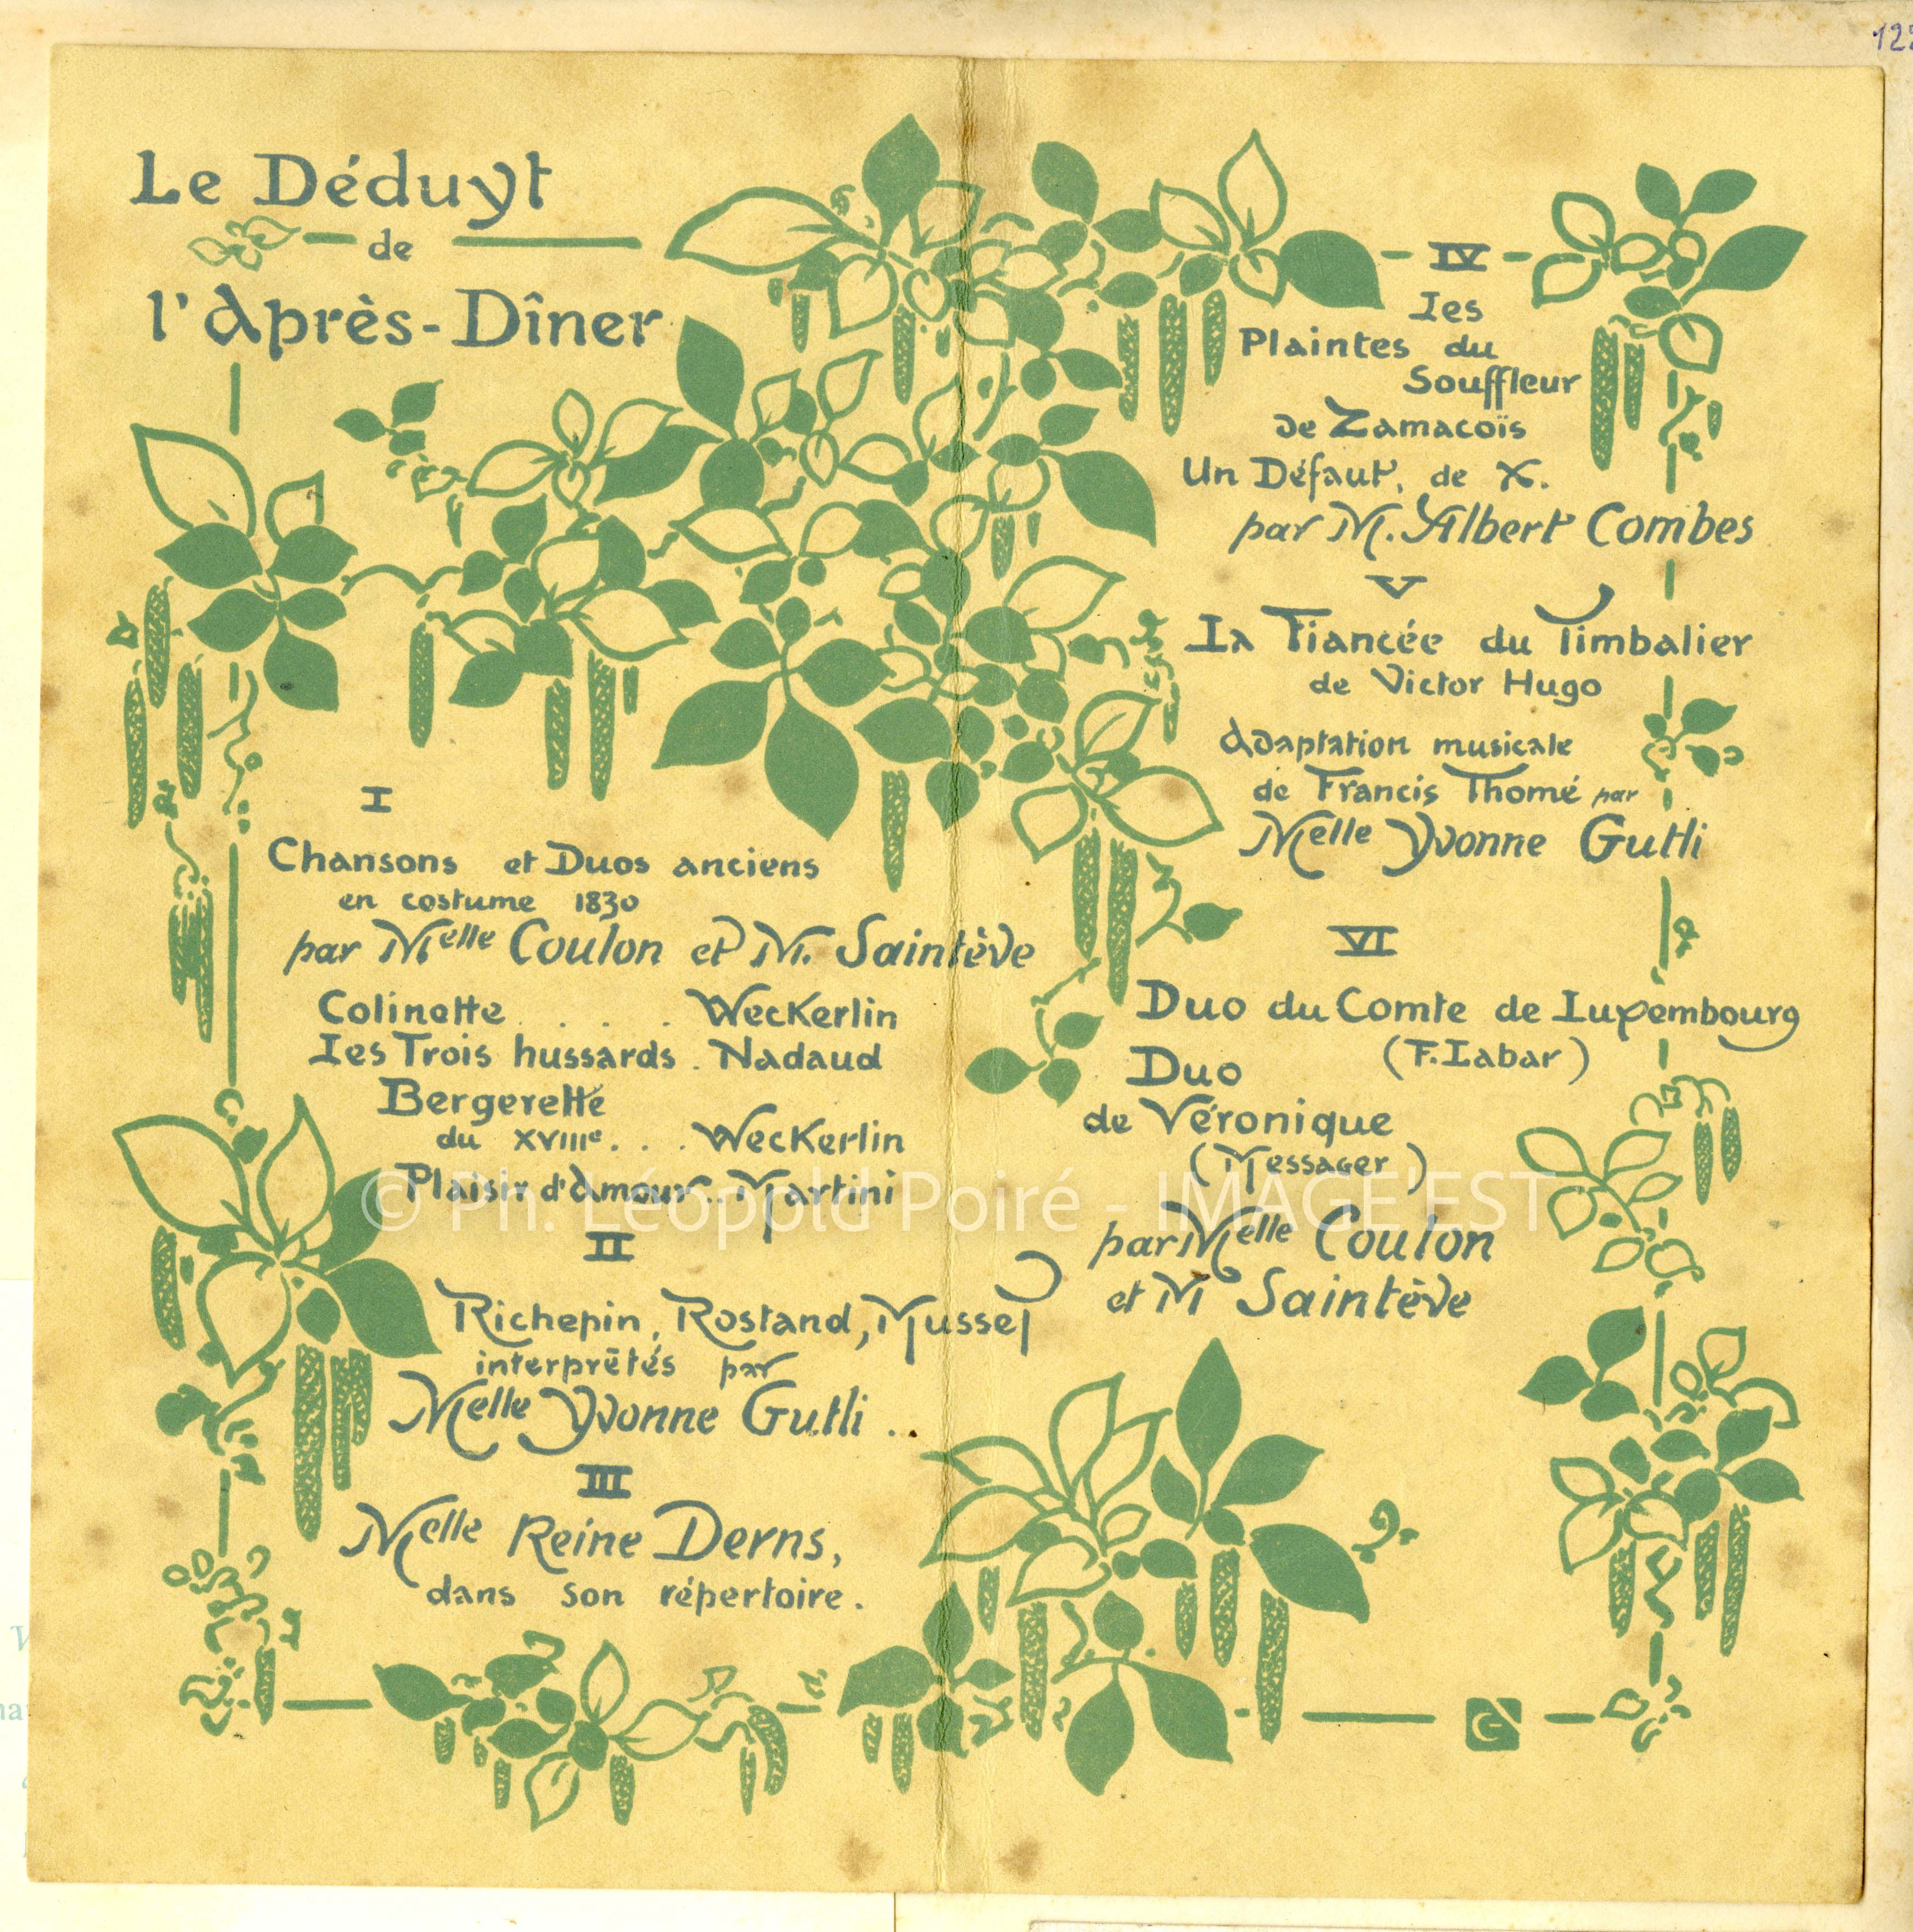 Le Déduyt
de
l'Après-Dîner
I
Chansons et Duos anciens
en costume 1830
par Melle Coulon et M. Saintève
Colinette . . . . Weckerlin
Les Trois hussards . Nadaud
Bergerette
du XVIIIe . . . Weckerlin
Plaisir d'Amour . . Martini
II
Richepin, Rostand, Musset
interprétés par
Melle Yvonne Gutli . .
III
Melle Reine Derns,
dans son répertoire.
IV
Les
Plaintes du
Souffleur
de Zamacoïs
Un Défaut, de X.
par M. Albert Combes
V
La Fiancée du Timbalier
de Victor Hugo
Adaptation musicale
de Francis Thomé par
Melle Yvonne Gutli
VI
Duo du Comte de Luxembourg
(F. Labar)
Duo
de Véronique
(Messager)
par Melle Coulon
et M Saintève
© Ph. Léopold Poiré - IMAGE'EST